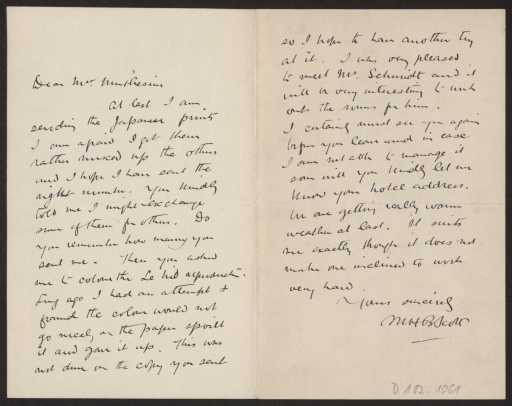 Dear Mr. Muthesius
At last I am
sending the Japanese prints
I am afraid I got them
rather mixed up the other
and I hope I have sent the
right number. You kindly
told me I might exchange
some of them for others. Do
you remember how many you
sent me. Then you asked
me to colour the
long ago I had an attempt &
found the colour would not
go nicely on the paper spoilt
it and gave it up. This was
not done on the copy you sent
so I hope to have another try
at it. I was very pleased
to meet Mr. Schmidt and it
will be very interesting to work
out the rooms for him.
I certainly must see you again
before you leave and in case
I am not able to manage it
soon will you kindly let me
know your hotel address.
We are getting really warm
weather at last. It suits
me exactly though it does not
make one inclined to work
very hard.
Yours sincerely
MHB Scott
D 102-1061